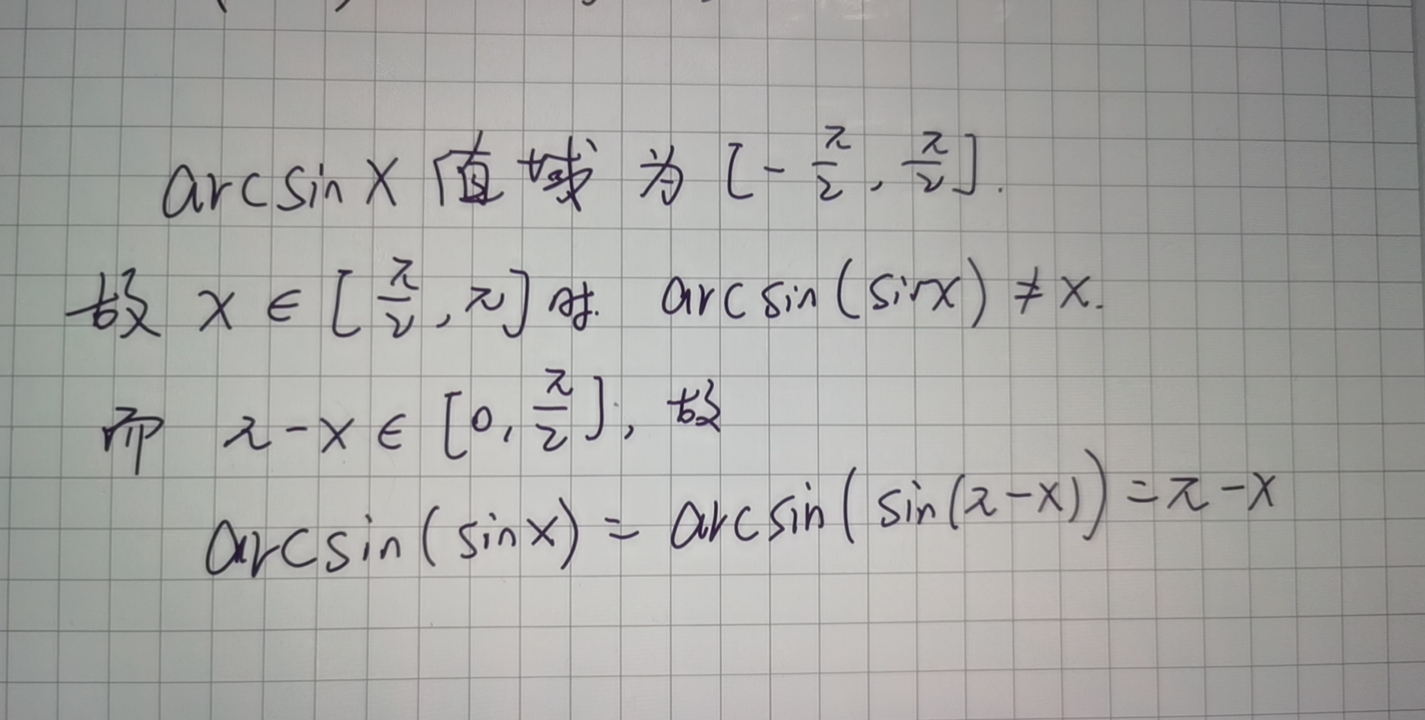 arcsin x 值域 为 [-π/2, π/2].
故 x ∈ [π/2, π] 时. arcsin(sinx) ≠ x.
而 π-x ∈ [0, π/2], 故
arcsin(sinx) = arcsin(sin(π-x)) = π-x